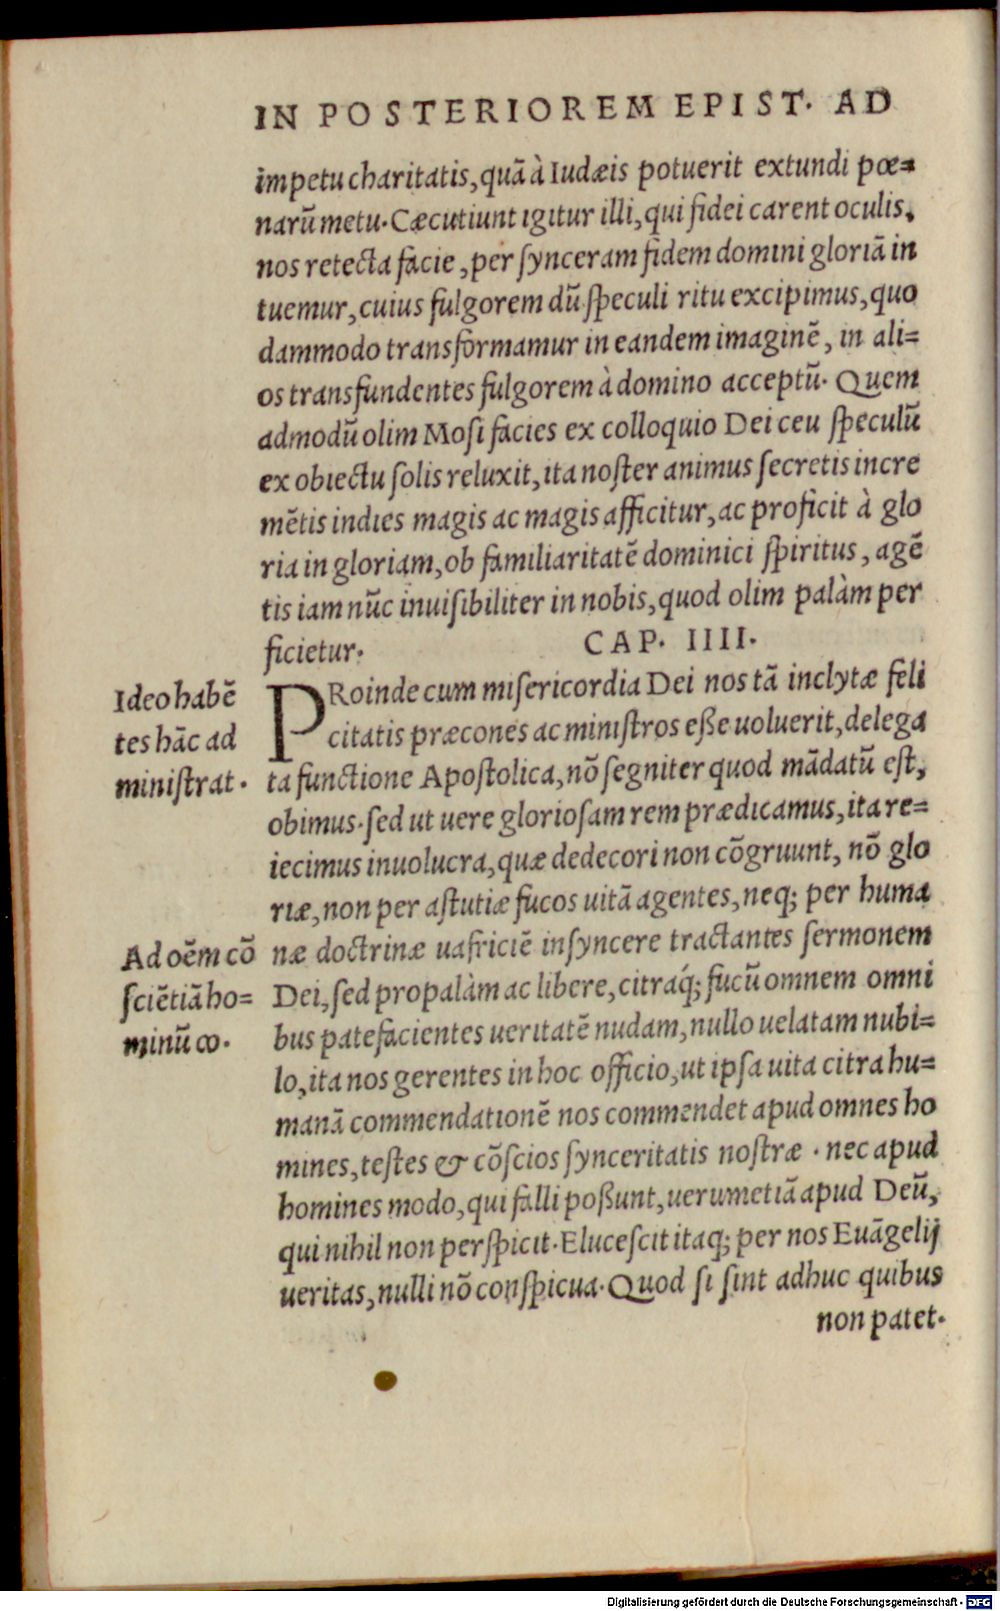 IN POSTERIOREM EPIST. AD
impetu charitatis, quã à Iudæis potuerit extundi pœ=
narũ metu. Cæcutiunt igitur illi, qui fidei carent oculis,
nos retecta facie, per ſynceram fidem domini gloriã in
tuemur, cuius fulgorem dũ ſpeculi ritu excipimus, quo
dammodo transformamur in eandem imaginẽ, in ali=
os transfundentes fulgorem à domino acceptũ. Quem
admodũ olim Moſi facies ex colloquio Dei ceu ſpeculũ
ex obiectu ſolis reluxit, ita noſter animus ſecretis incre
mẽtis indies magis ac magis afficitur, ac proficit à glo
ria in gloriam, ob familiaritatẽ dominici ſpiritus, agẽ
tis iam nũc inuiſibiliter in nobis, quod olim palàm per
ficietur. CAP. IIII.
Ideo habẽ
tes hãc ad
miniſtrat.
PRoinde cum miſericordia Dei nos tã inclytæ feli
citatis præcones ac miniſtros eſſe uoluerit, delega
ta functione Apoſtolica, nõ ſegniter quod mãdatũ eſt,
obimus. ſed ut uere glorioſam rem prædicamus, ita re=
iecimus inuolucra, quæ dedecori non cõgruunt, nõ glo
riæ, non per aſtutiæ fucos uitã agentes, neq; per huma
Ad oẽm cõ
ſciẽtiã ho=
minũ co.
næ doctrinæ uafriciẽ inſyncere tractantes ſermonem
Dei, ſed propalàm ac libere, citráq; fucũ omnem omni
bus patefacientes ueritatẽ nudam, nullo uelatam nubi=
lo, ita nos gerentes in hoc officio, ut ipſa uita citra hu=
manã commendationẽ nos commendet apud omnes ho
mines, teſtes & cõſcios ſynceritatis noſtræ. nec apud
homines modo, qui falli poſſunt, uerumetiã apud Deũ,
qui nihil non perſpicit. Eluceſcit itaq; per nos Euãgelij
ueritas, nulli nõ conſpicua. Quod ſi ſint adhuc quibus
non patet.
Digitalisierung gefördert durch die Deutsche Forschungsgemeinschaft - DFG